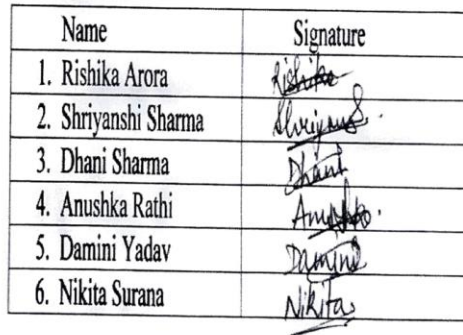 Name Signature
1. Rishika Arora Rishika
2. Shriyanshi Sharma Shriyanshi
3. Dhani Sharma Dhani
4. Anushka Rathi Anushka
5. Damini Yadav Damini
6. Nikita Surana Nikita